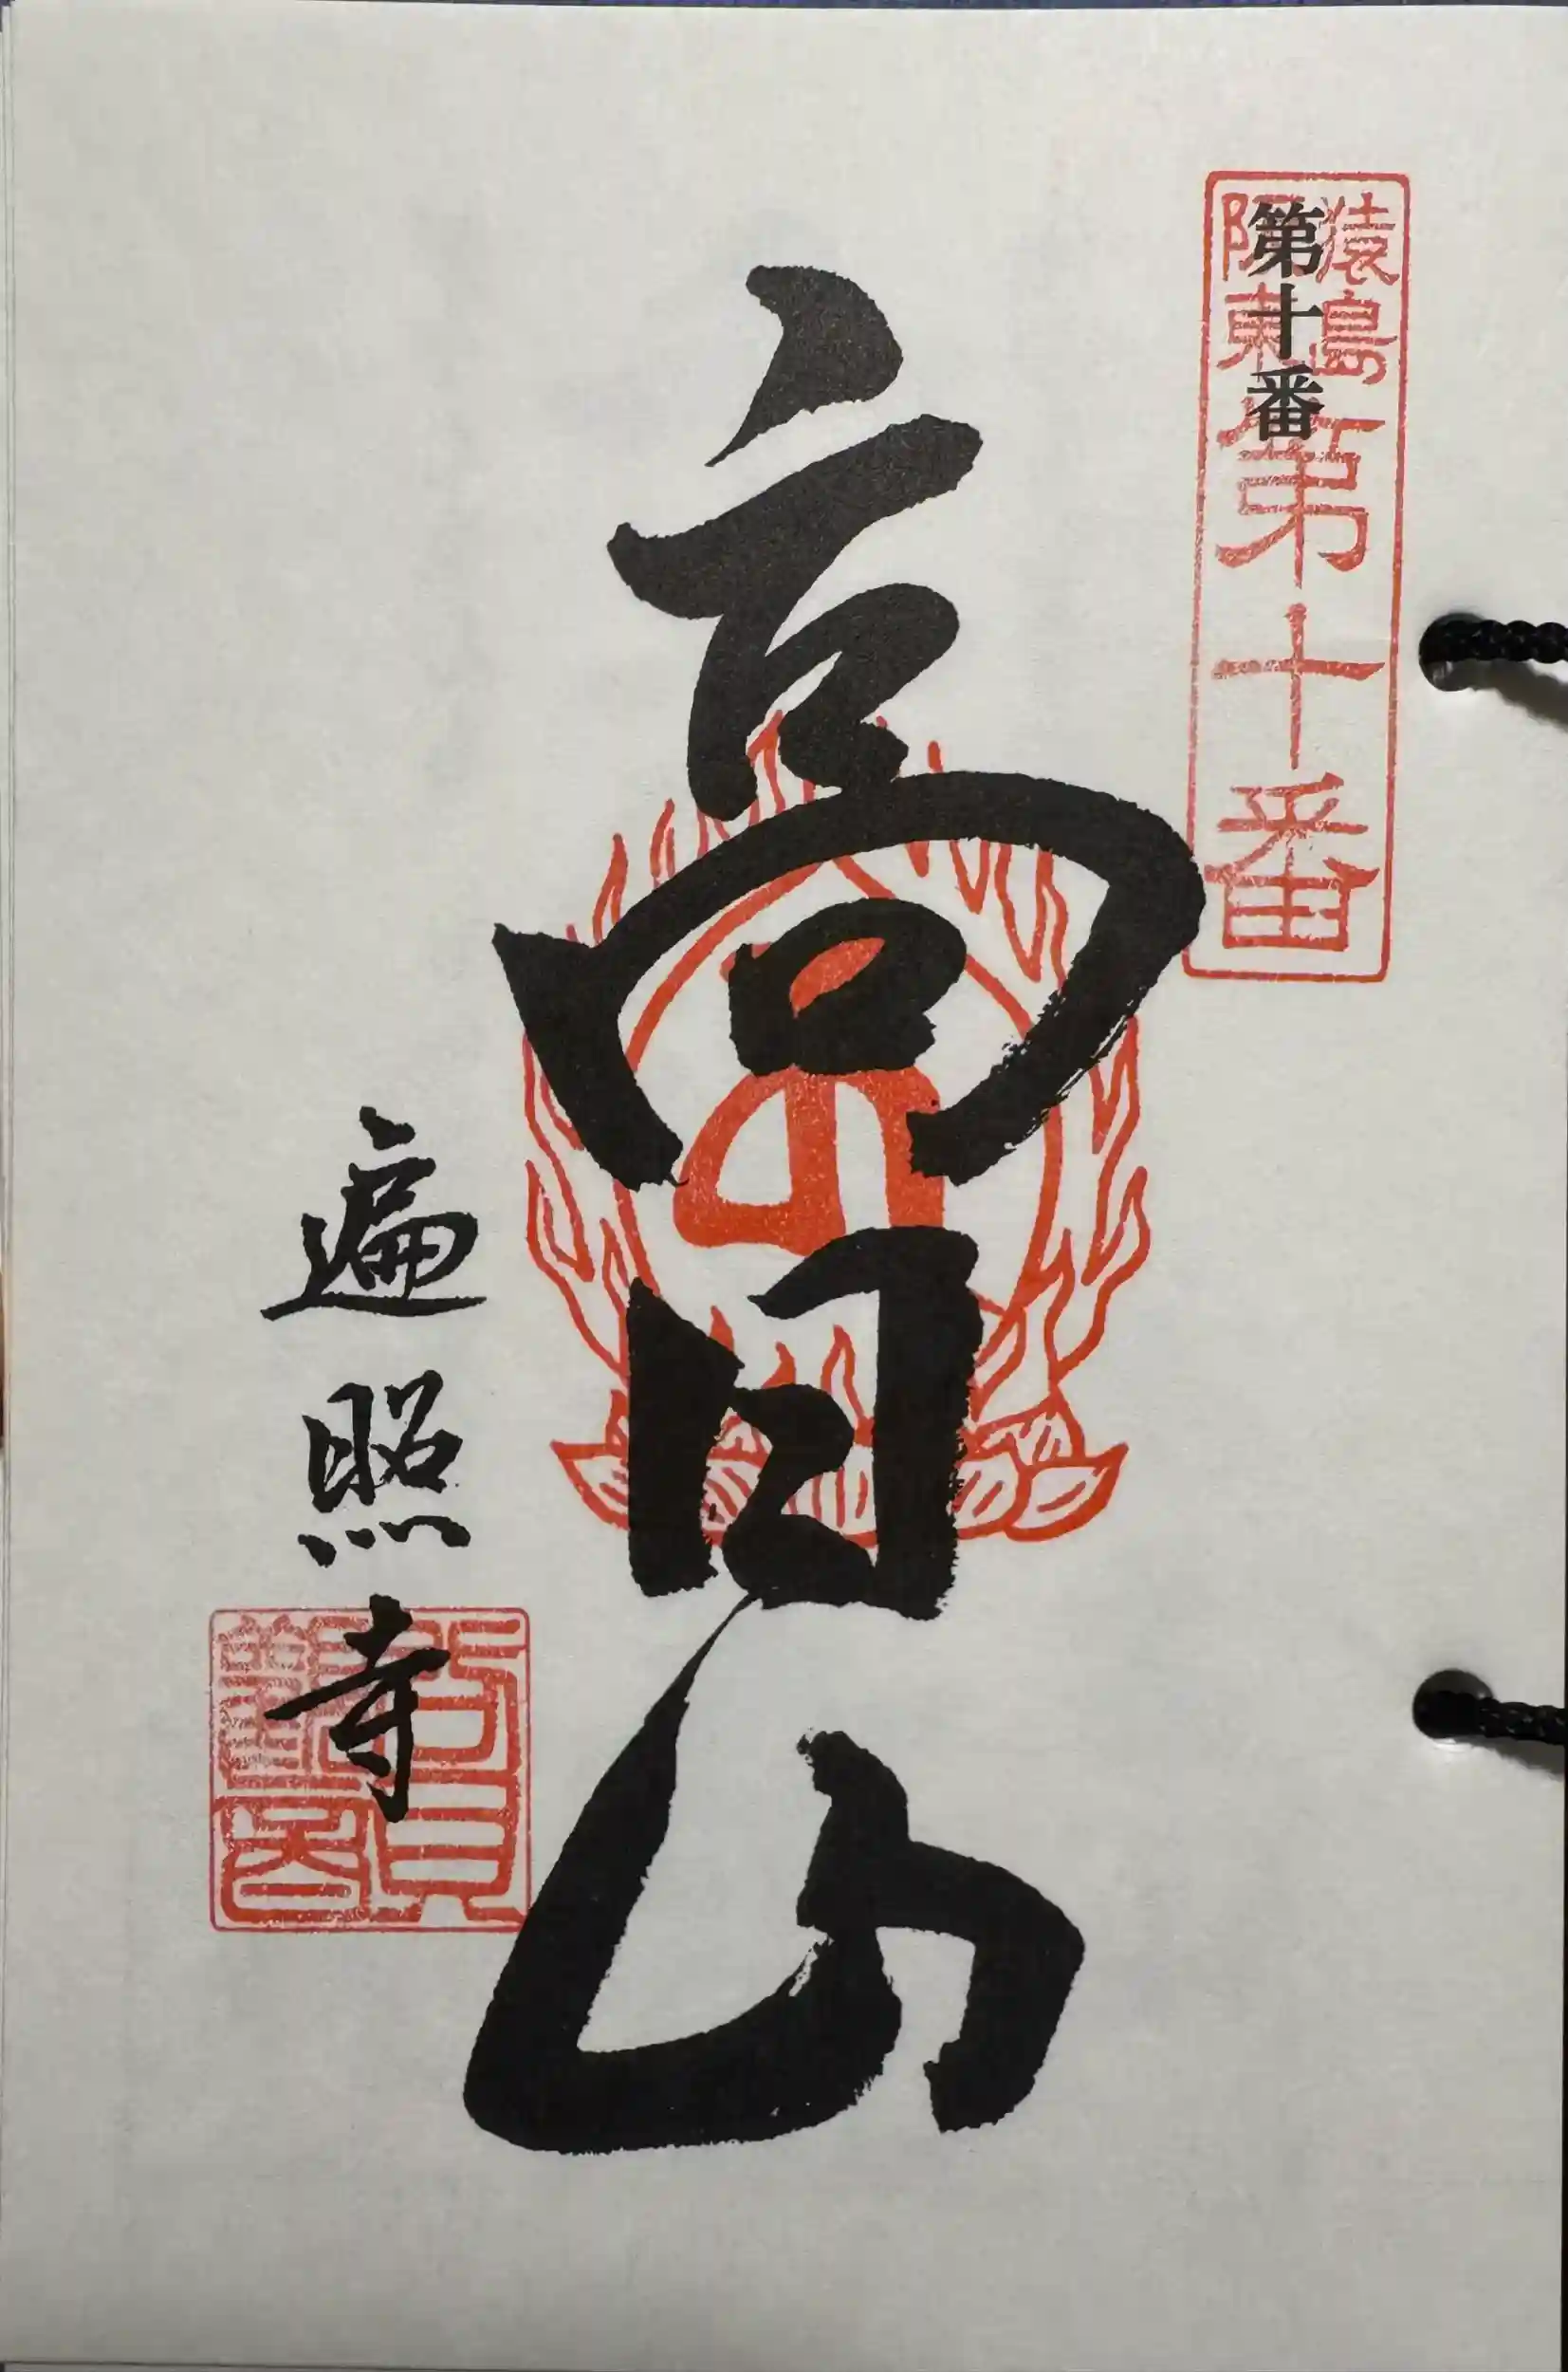 猿島
阪東
第十番
第十番
高日山
遍照寺